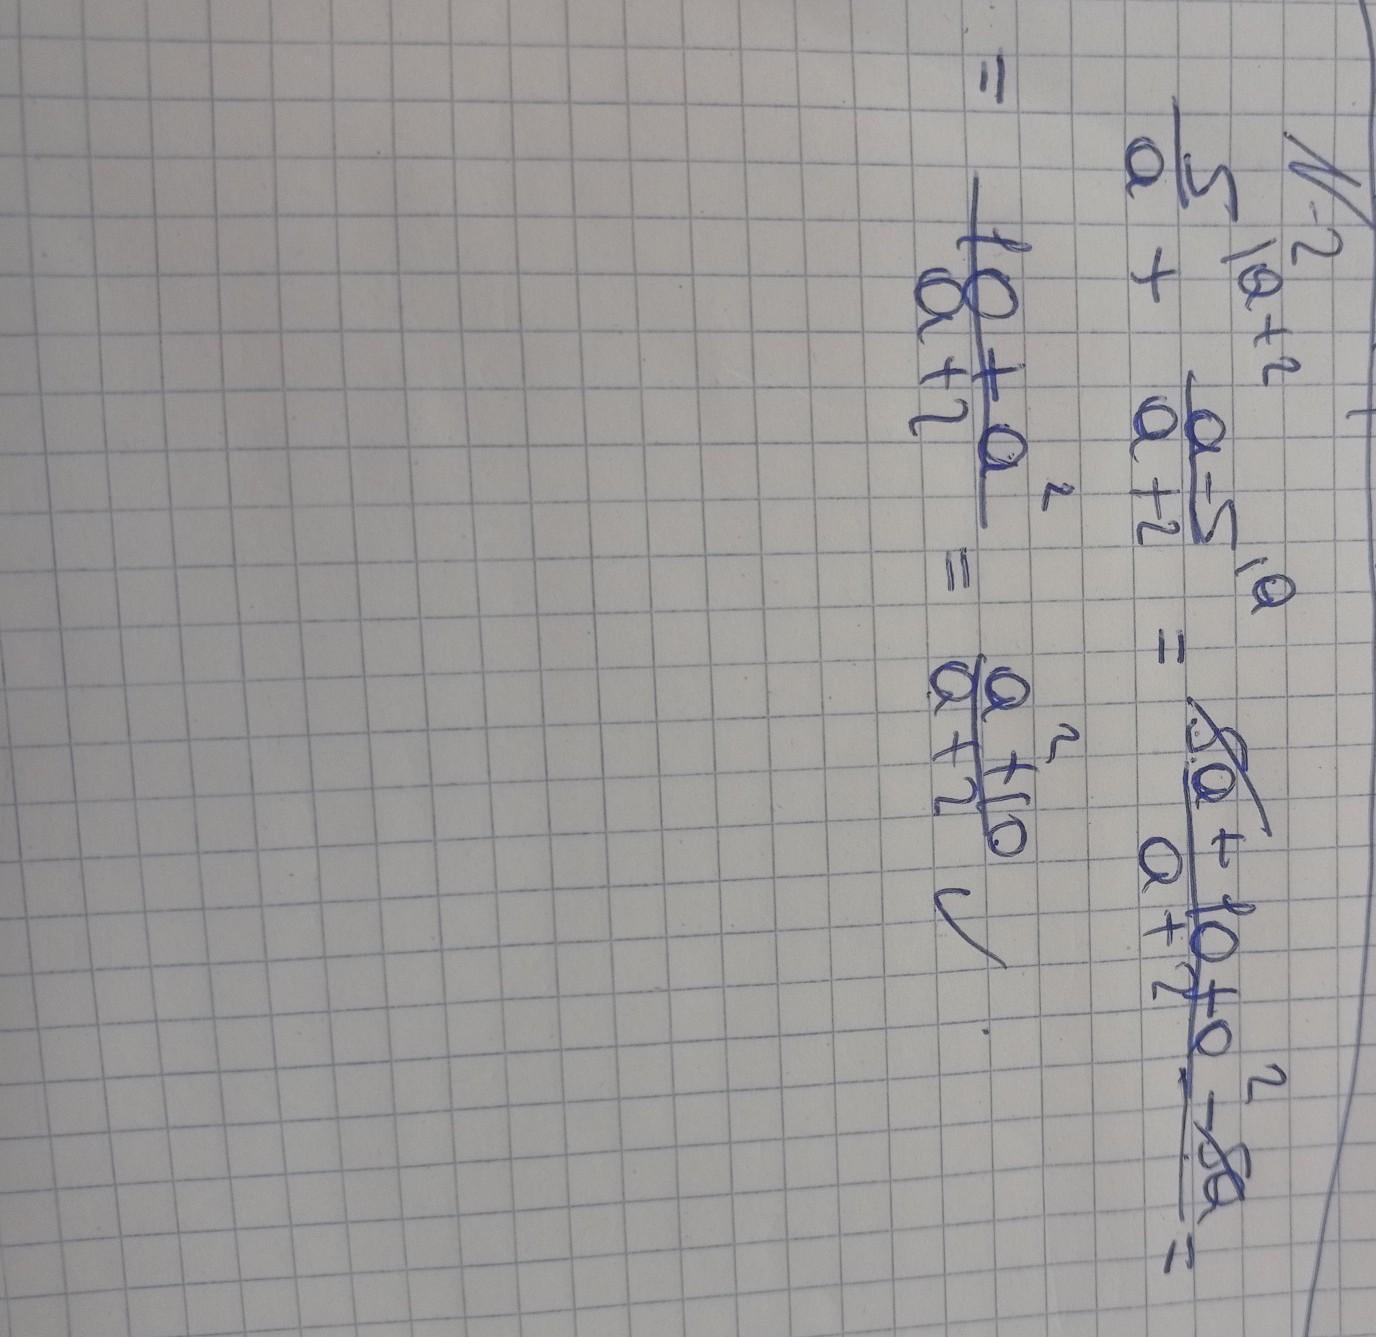 N-2
5/a \a+2 + a-5/a+2 \a = 5a+10+a²-5a/a+2 =
= 10+a²/a+2 = a²+10/a+2 ✓